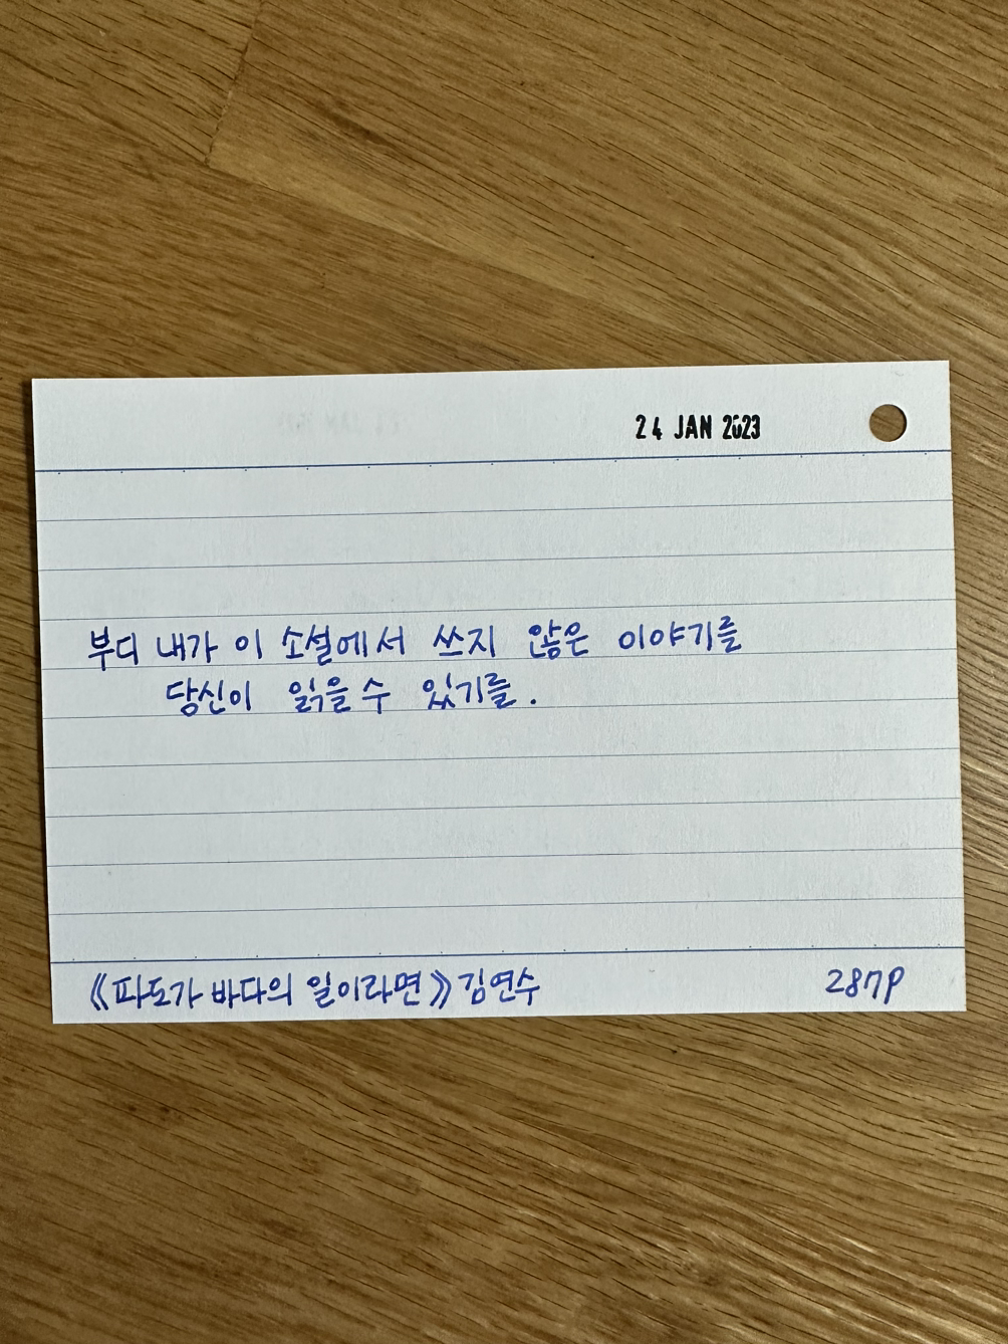 24 JAN 2023
부디 내가 이 소설에서 쓰지 않은 이야기를
당신이 읽을 수 있기를.
《파도가 바다의 일이라면》 김연수 287p